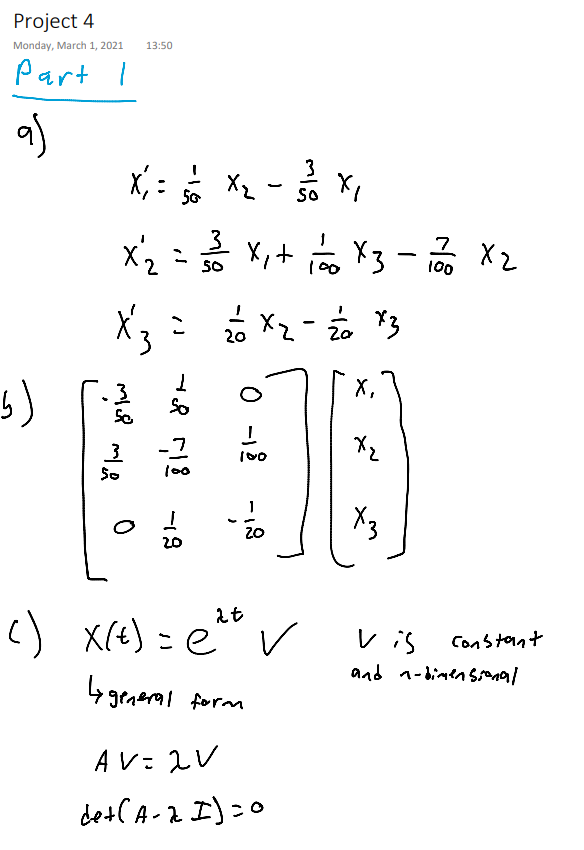 Project 4
Monday, March 1, 2021 13:50
Part 1
a)
x₁' = 1/50 x₂ - 3/50 x₁
x₂' = 3/50 x₁ + 1/100 x₃ - 7/100 x₂
x₃' = 1/20 x₂ - 1/20 x₃
b) [ -3/50 1/50 0 ] [ x₁ ]
[ 3/50 -7/100 1/100 ] [ x₂ ]
[ 0 1/20 -1/20 ] [ x₃ ]
c) x(t) = e^{λt} V V is constant
and n-dimensional
↳ general form
AV = λV
det(A - λI) = 0